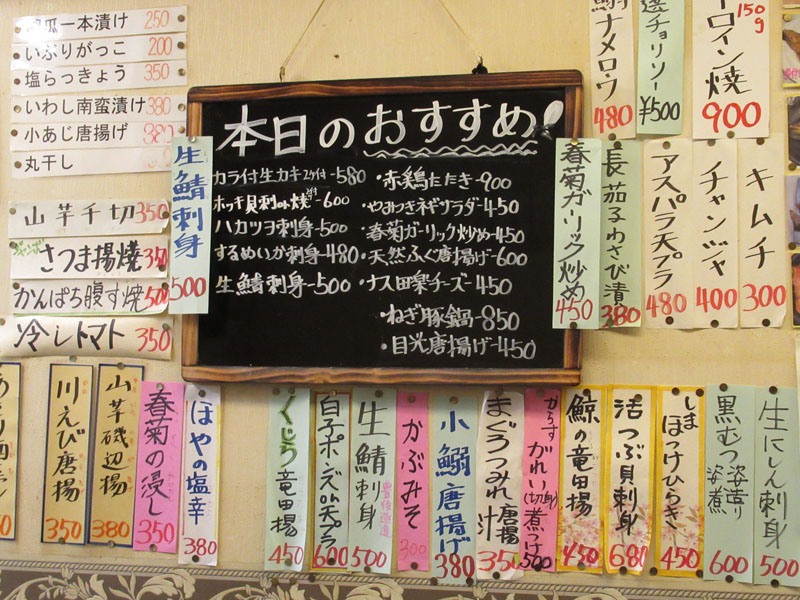 一本漬け 250
いぶりがっこ 200
塩らっきょう 350
いわし南蛮漬け 380
小あじ唐揚げ 380
丸干し
山芋千切 350
さつま揚焼 350
かんぱち腹す焼 500
冷しトマト 350
生鯖刺身 500
本日のおすすめ!
カラ付生カキ2ケ付-580
ホッキ貝刺or焼-600
ハカツヲ刺身-500
するめいか刺身-480
生鯖刺身-500
・赤鶏たたき-900
・やみつきネギサラダ-450
・春菊ガーリック炒め-450
・天然ふぐ唐揚げ-600
・ナス田楽チーズ-450
・ねぎ豚鍋-850
・目光唐揚げ-450
ナメロウ 480
選チョリソー ¥500
ーロイン焼 150g 900
春菊ガーリック炒め 450
長茄子わさび漬 380
アスパラ天プラ 480
チャンジャ 400
キムチ 300
川えび唐揚 350
山芋磯辺揚 380
春菊の浸し 350
ほやの塩辛 380
くじら竜田揚 450
白子ポンズor天プラ 600
生鯖刺身 500
かぶみそ 300
小鰯唐揚げ 380
まぐろつみれ汁 350
からすがれい(切身)唐揚 煮つけ 500
鯨の竜田揚 450
活つぶ貝刺身 680
しまほっけひらき 450
黒むつ姿造り 姿煮 600
生にしん刺身 500